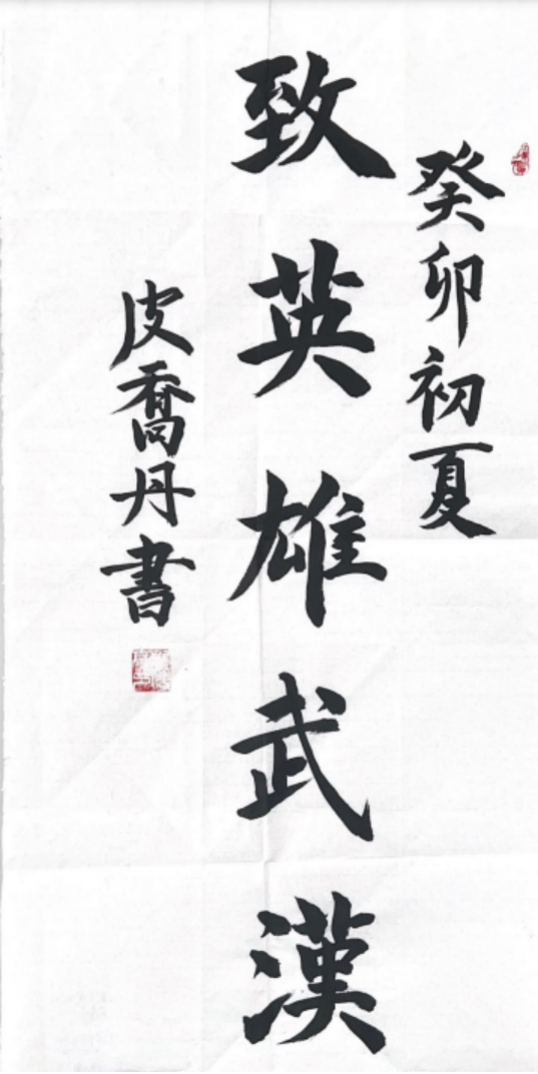 癸卯初夏
致英雄武漢
皮喬丹書